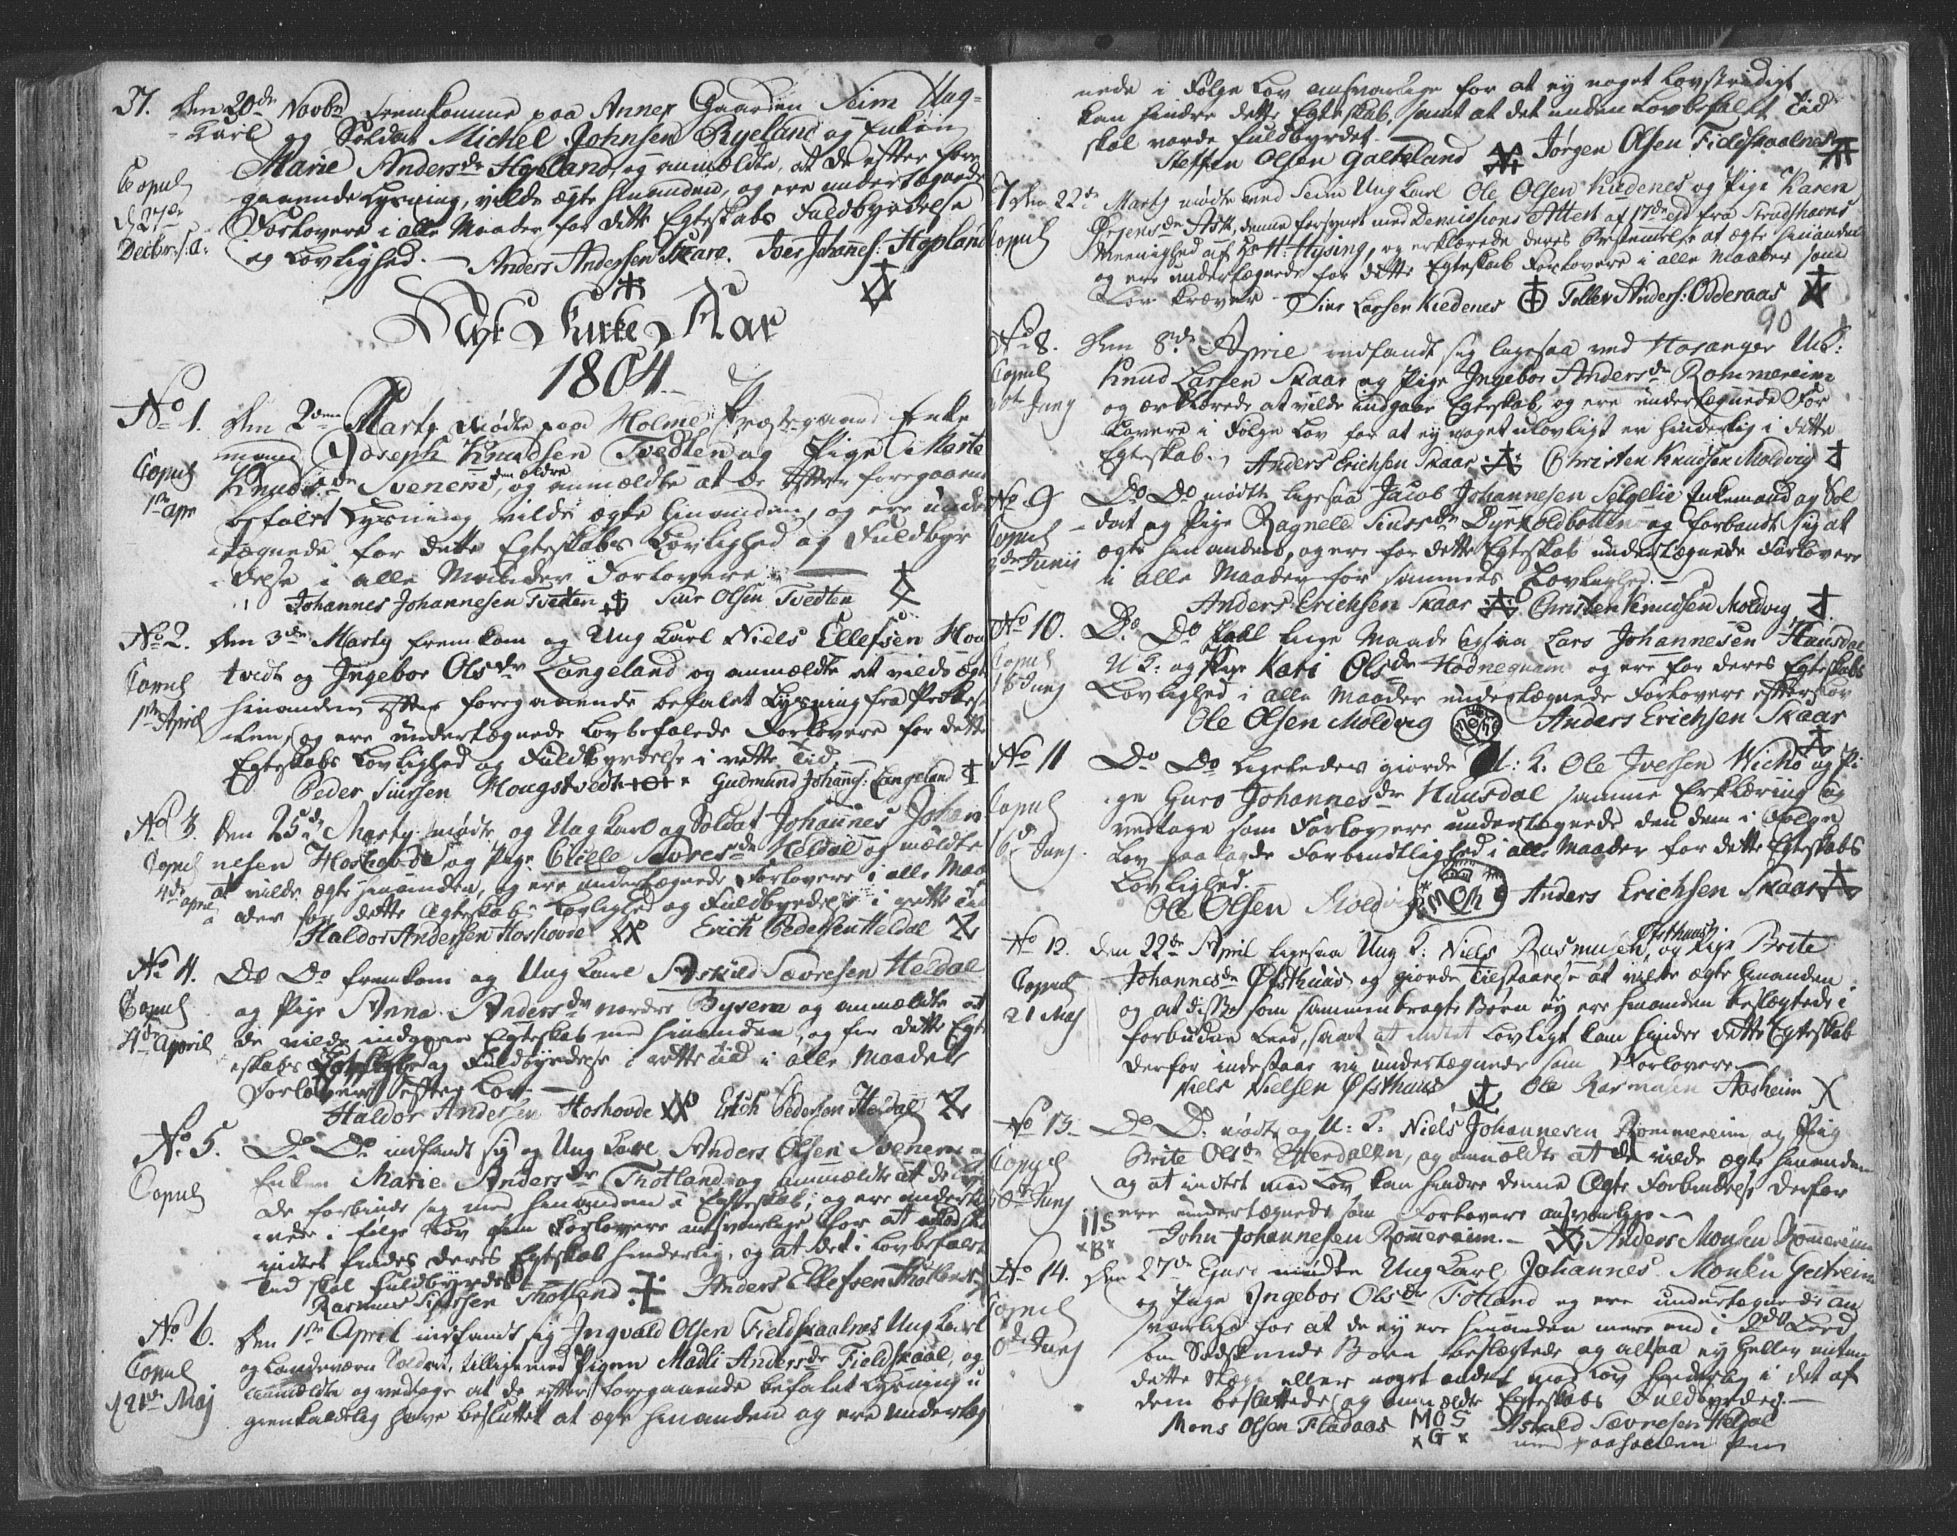 37. Den 20de Novbr fremkomme paa Annex Gaarden Seim Ung-
karl og Soldat Michel Johnsen Ryeland og Enken
Marie Andersdr Hopland, og anmældte, at de efter fore
Copul gaaende Lysning, vilde ægte hinanden, og ere undertegnede
d. 27de Forlovere i alle Maader for dette Egteskabs Fuldbyrdelse
Decbr. s.a. og Lovlighed. Anders Andersen Skare. Iver Johanes: Hopland
Nyt Kirke Aar
1804
No 1. Den 2den Marty mødte paa Holme Præstegaard Enke
mand Joseph Knudsen Tvedten og Pige Marte
Copul Knudsdr Sveneru den ældre, og anmældte at de efter foregaaende
1ste apr befalet Lysning vilde ægte hinanden, og ere under
tegnede for dette Egteskabs Lovlighed og Fuldbyr
delse i alle Maader Forlovere
Johannes Johannesen Tvedten Siur Olsen Tvedten
No 2. Den 3de Marty fremkom og Ung Karl Niels Ellefsen Houg
tvedt og Ingebor Olsdr Langeland og anmældte at vilde ægte
Copul hinanden efter foregaaende befalet Lysning fra Præke-
1ste April len, og ere undertegnede Lovbefalede Forlovere for dette
Egteskabs Lovlighed og Fuldbyrdelse i rette Tid.
Peder Siursen Hougstvedt Gudmund Johans: Langeland
No 3. Den 25de Marty mødte og Ung Karl og Soldat Johannes Johan
Copul nesen Hoshovde og Pige Sævresdr Heldal og mældte
4de april at vilde ægte hinanden, og ere undertegnede Forlovere i alle Maa
der for dette Ægteskabs Lovlighed og Fuldbyrdelse i rette Tid
Haldor Andersen Hoshovde Erich Pedersen Heldal
No 4. Do Do fremkom og Ung Karl Askild Sævresen Heldal
Copul og Pige Anna Andersdr nordre Bysem og anmældte at
4de April de vilde indgaae Egteskab med hinanden, og for dette Egte
skabs og Fuldbyrdelse i rette Tid i alle Maader
Forlovere efter Lov.
Haldor Andersen Hoshovde Erich Pedersen Heldal
No. 5. Do Do indfandt sig og Ung Karl Anders Olsen Sveneru og
Enken Marie Andersdr Totland og anmældte at de vil
Copul de forbinde sig med hinanden i Egteskab, og ere undertegn
nede i følge Lov som Forlovere ansvarlige for at
intet findes deres Egteskab hinderlig, og at det i Lovbefalet
Tid skal fuldbyrdes
Rasmus Siursen Thotland Anders Ellefsen Thotland
No 6. Den 1ste April indfandt sig Ingvald Olsen Fieldskaalnes Ung Karl
Copul og Landeværn Soldat, tilligemed Pigen Madli Andersdr Fieldskaal, og
d 21de Maj anmældte og vedtoge at de efter foregaaende befalet Lysning i
gienkaldelig have besluttet at ægte hinanden og ere underteg
nede i Følge Lov ansvarlige for at ey noget Lovstridigt
kan hindre dette Egteskab, samt at det inden Lovbefalet Tid
skal vorde fuldbyrdet
Steffen Olsen Galteland Jørgen Olsen Fieldskaalnes
7 Den 22de Marty mødte ved Seim Ung Karl Ole Olsen Kiedenes og Pige Karen
Copul Ørgensdr Ask, denne forsynet med Demissions Attest af 17de ejd fra Strudshavns
Meenighed af Hr H: Hysing, og erklærede deres Bestemmelse at ægte hinanden
og ere undertegnede for dette Egteskab Forlovere i alle Maader som
Lov kræver Siur Larsen Kiedenes Tollev Anders: Odderaas
90
No 8. Den 8de April indfandt sig ligesaa ved Hosanger U.K:
Copul Knud Larsen Skaar og Pige Ingebor Andersdr Rommereim
Juny og erklærede at vilde indgaae Egteskab, og ere undertegnede For
lovere i Følge Lov for at ey noget ulovligt er hinderlig i dette
Egteskab. Anders Erichsen Skaar Christen Knudsen Moldvig
No 9 Do Do mødte ligesaa Jacob Johannesen Selgelie Enkemand og Sol
Copul dat og Pige Ragnele Siursdr Dyrkolbotten og forbandt sig at
Junii ægte hinanden, og ere for dette Egteskab undertegnede Forlovere
i alle Maader for sammes Lovlighed.
Anders Erichsen Skaar Christen Knudsen Moldvig
No 10. Do Do lige Maade ligesaa Lars Johannesen Huusdal
Copul U K: og Pige Kari Olsdr Hodneqvam og ere for deres Egteskabs
Juny Lovlighed i alle Maader undertegnede Forlovere efter Lov
Ole Olsen Moldvig Anders Erichsen Skaar
No 11 Do Do Ligeledes giorde U: K. Ole Iversen Vichø og Pi
Copul ge Guro Johannesdr Huusdal samme Erklæring og
vedtage som Forlovere undertegnede den dem i Følge
Juny. Lov paalagde Forbindtlighed i alle Maader for dette Egteskabs
Lovlighed.
Ole Olsen Moldvig Anders Erichsen Skaar
No 12. Den 22de April ligesaa Ung K: Niels Rasmusen Øfsthuus, og Pige Brite
Copul Johannesdr Øfsthuus og giorde Tilstaaelse at vilde ægte hinanden
21 Maj og at disse som sammenbragte Børn ey ere hinanden beslægtede i
forbuden Leed, samt at intet Lovligt kan hindre dette Egteskab
derfor indestaae vi undertegnede som Forlovere
Niels Nielsen Øfsthuus Ole Rasmusen Aasheim
No 13. Do D: mødte og U: K: Niels Johannesen Rommereim, og Pig
Copul Brite Olsdr Etterdalen, og anmældte at de vilde ægte hinanden
Juny og at intet med Lov kan hindre denne Ægte Forbindelse derfor
ere undertegnede som Forlovere ansvarlige
IIS
B John Johannesen Romereim. Anders Monsen Romereim
No 14. Den 27de Ejusd mødte Ung Karl Johannes Monsen Geitreim
Copul og Pige Ingebor Olsdr Fotland og ere undertegnede an
svarlige for at de ey ere hinanden mere end i 2det Leed
Juny som Sødskende Børn beslægtede og altsaa ey heller enten
dette Slægt eller noget andet med Lov hinderlig i det af
dem besluttede og anmeldte Egteskabs Fuldbyrded.
Mons Olsen Fladaas MOS G Askild Sævresen Heldal
med paaholden Pen